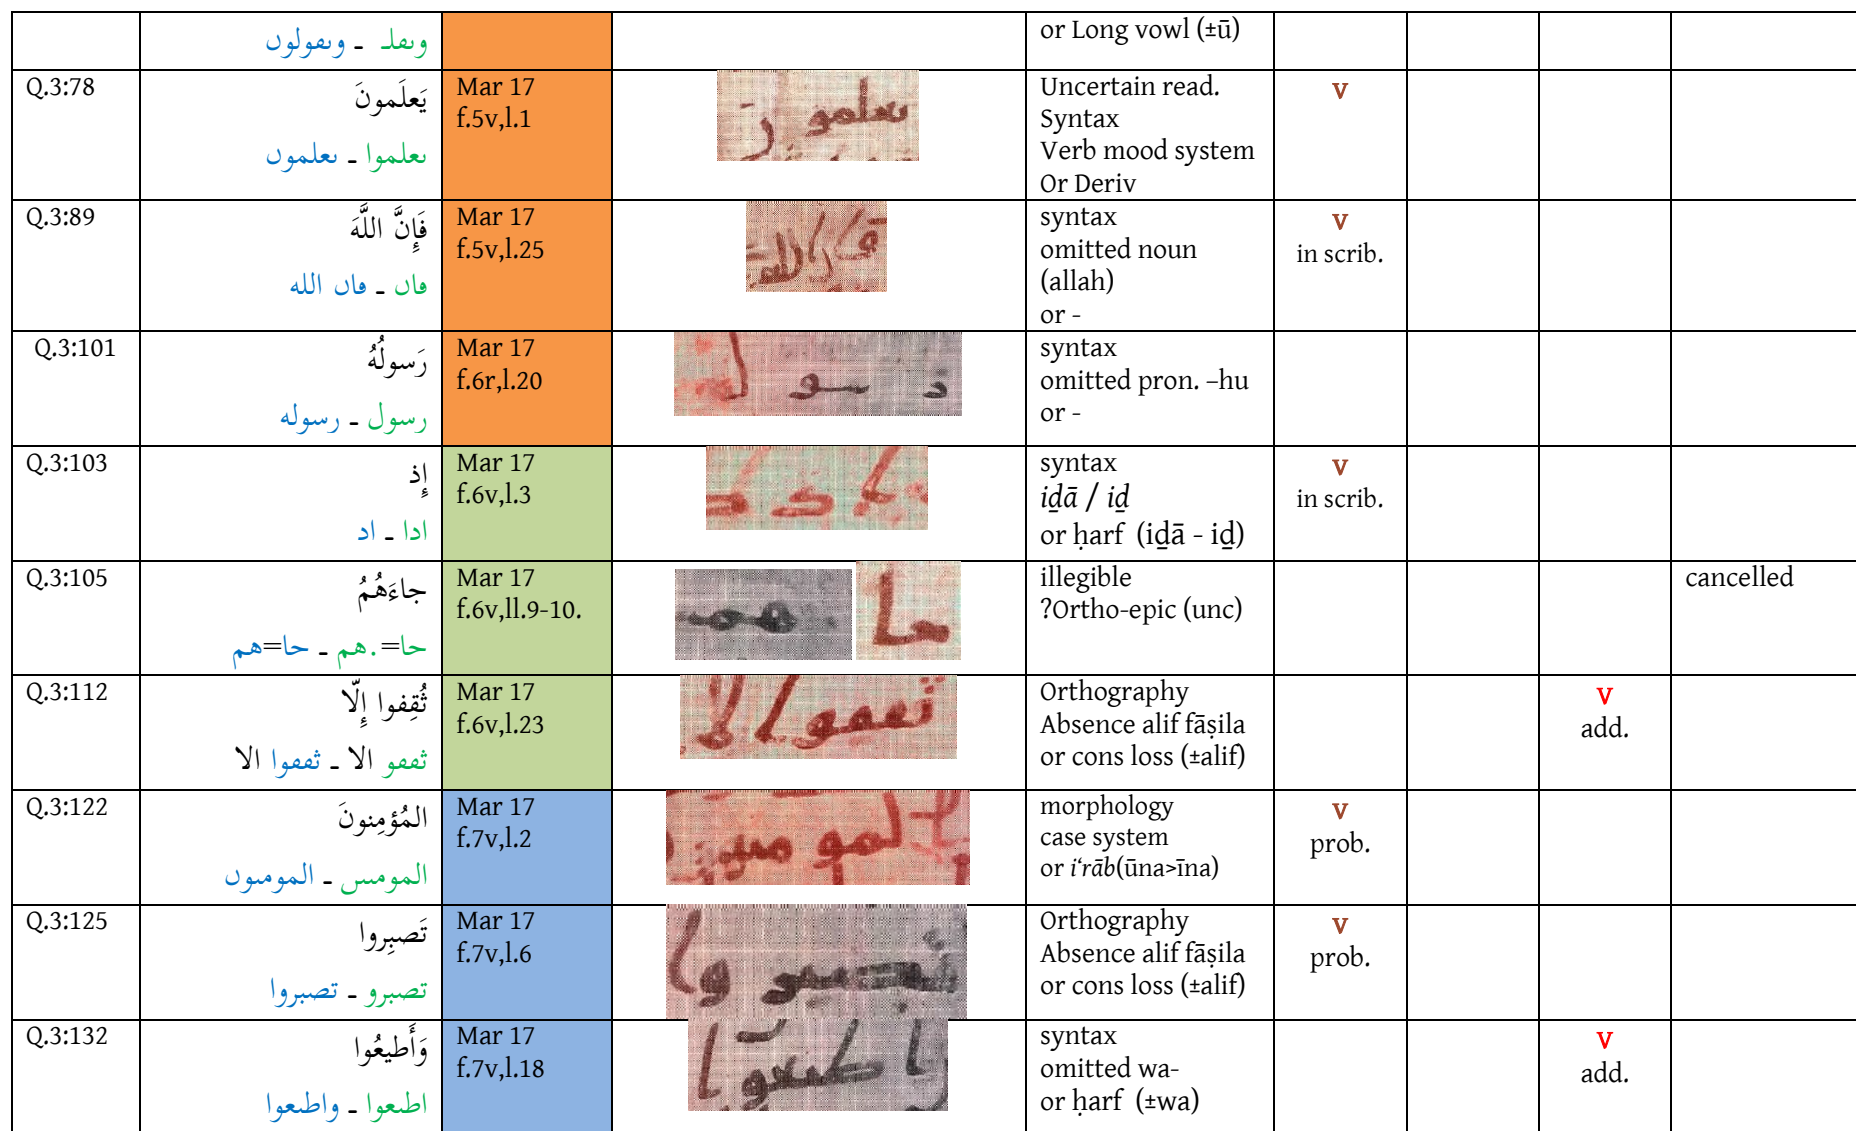 وٮڡلـ ـ وٮڡولوں
or Long vowl (±ū)
Q.3:78
يَعلَمونَ
ٮعلموا ـ ٮعلموں
Mar 17
f.5v,l.1
Uncertain read.
Syntax
Verb mood system
Or Deriv
v
Q.3:89
فَإِنَّ اللَّهَ
ڡاں ـ ڡاں الله
Mar 17
f.5v,l.25
syntax
omitted noun
(allah)
or -
v
in scrib.
Q.3:101
رَسولُهُ
رسول ـ رسوله
Mar 17
f.6r,l.20
syntax
omitted pron. –hu
or -
Q.3:103
إِذ
ادا ـ اد
Mar 17
f.6v,l.3
syntax
iḏā / iḏ
or ḥarf (iḏā - iḏ)
v
in scrib.
Q.3:105
جاءَهُمُ
حا=.هم ـ حا=هم
Mar 17
f.6v,ll.9-10.
illegible
?Ortho-epic (unc)
cancelled
Q.3:112
ثُقِفوا إِلّا
ثڡڡو الا ـ ثڡڡوا الا
Mar 17
f.6v,l.23
Orthography
Absence alif fāṣila
or cons loss (±alif)
v
add.
Q.3:122
المُؤمِنونَ
المومٮٮں ـ المومٮوں
Mar 17
f.7v,l.2
morphology
case system
or i‘rāb(ūna>īna)
v
prob.
Q.3:125
تَصبِروا
تصبرو ـ تصبروا
Mar 17
f.7v,l.6
Orthography
Absence alif fāṣila
or cons loss (±alif)
v
prob.
Q.3:132
وَأَطيعُوا
اطٮعوا ـ واطٮعوا
Mar 17
f.7v,l.18
syntax
omitted wa-
or ḥarf (±wa)
v
add.